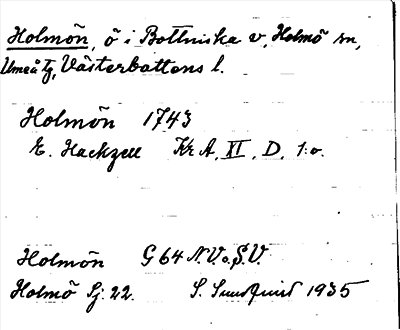 Holmön, ö i Bottniska v, Holmö sn,
Umeå tg, Västerbottens l.
Holmön 1743
E. Hackzell Kr A, XI, D, 1:o.
Holmön G 64 N.V. o. S.V.
Holmö Sj. 22. S. Sundqvist 1935